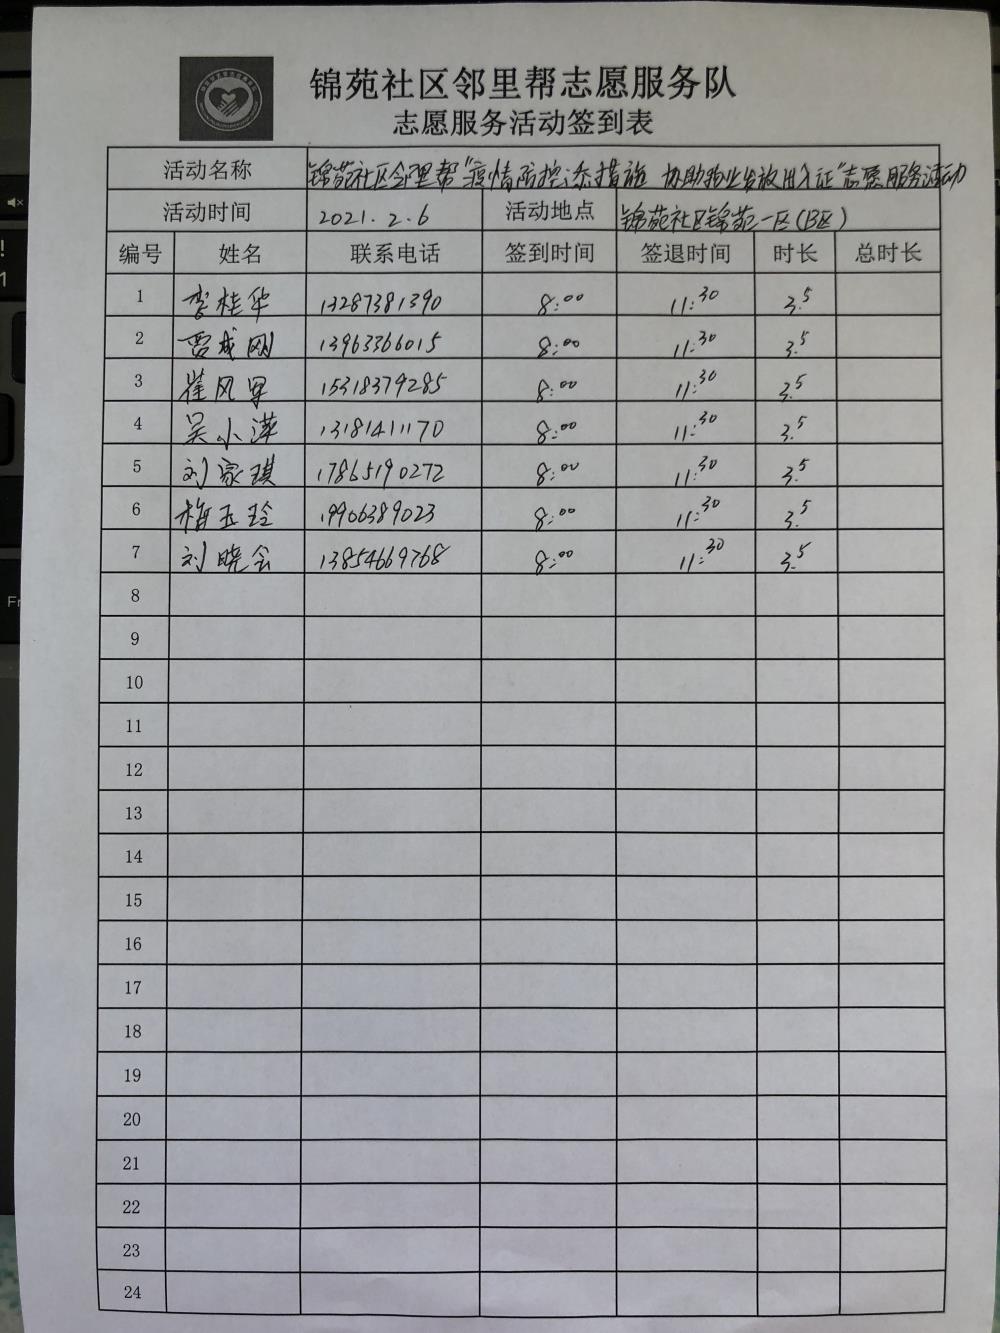 锦苑社区邻里帮志愿服务队
志愿服务活动签到表
活动名称 锦苑社区邻里帮"疫情防控添措施 协助物业发放出入证"志愿服务活动
活动时间 2021.2.6 活动地点 锦苑社区锦苑一区(B区)
编号 姓名 联系电话 签到时间 签退时间 时长 总时长
1 李桂华 13287381390 8:00 11:30 3.5
2 贾成刚 13963366015 8:00 11:30 3.5
3 崔风军 15318379285 8:00 11:30 3.5
4 吴小萍 13181411170 8:00 11:30 3.5
5 刘家琪 17865190272 8:00 11:30 3.5
6 梅玉玲 19906389023 8:00 11:30 3.5
7 刘晓会 13854669768 8:00 11:30 3.5
8
9
10
11
12
13
14
15
16
17
18
19
20
21
22
23
24